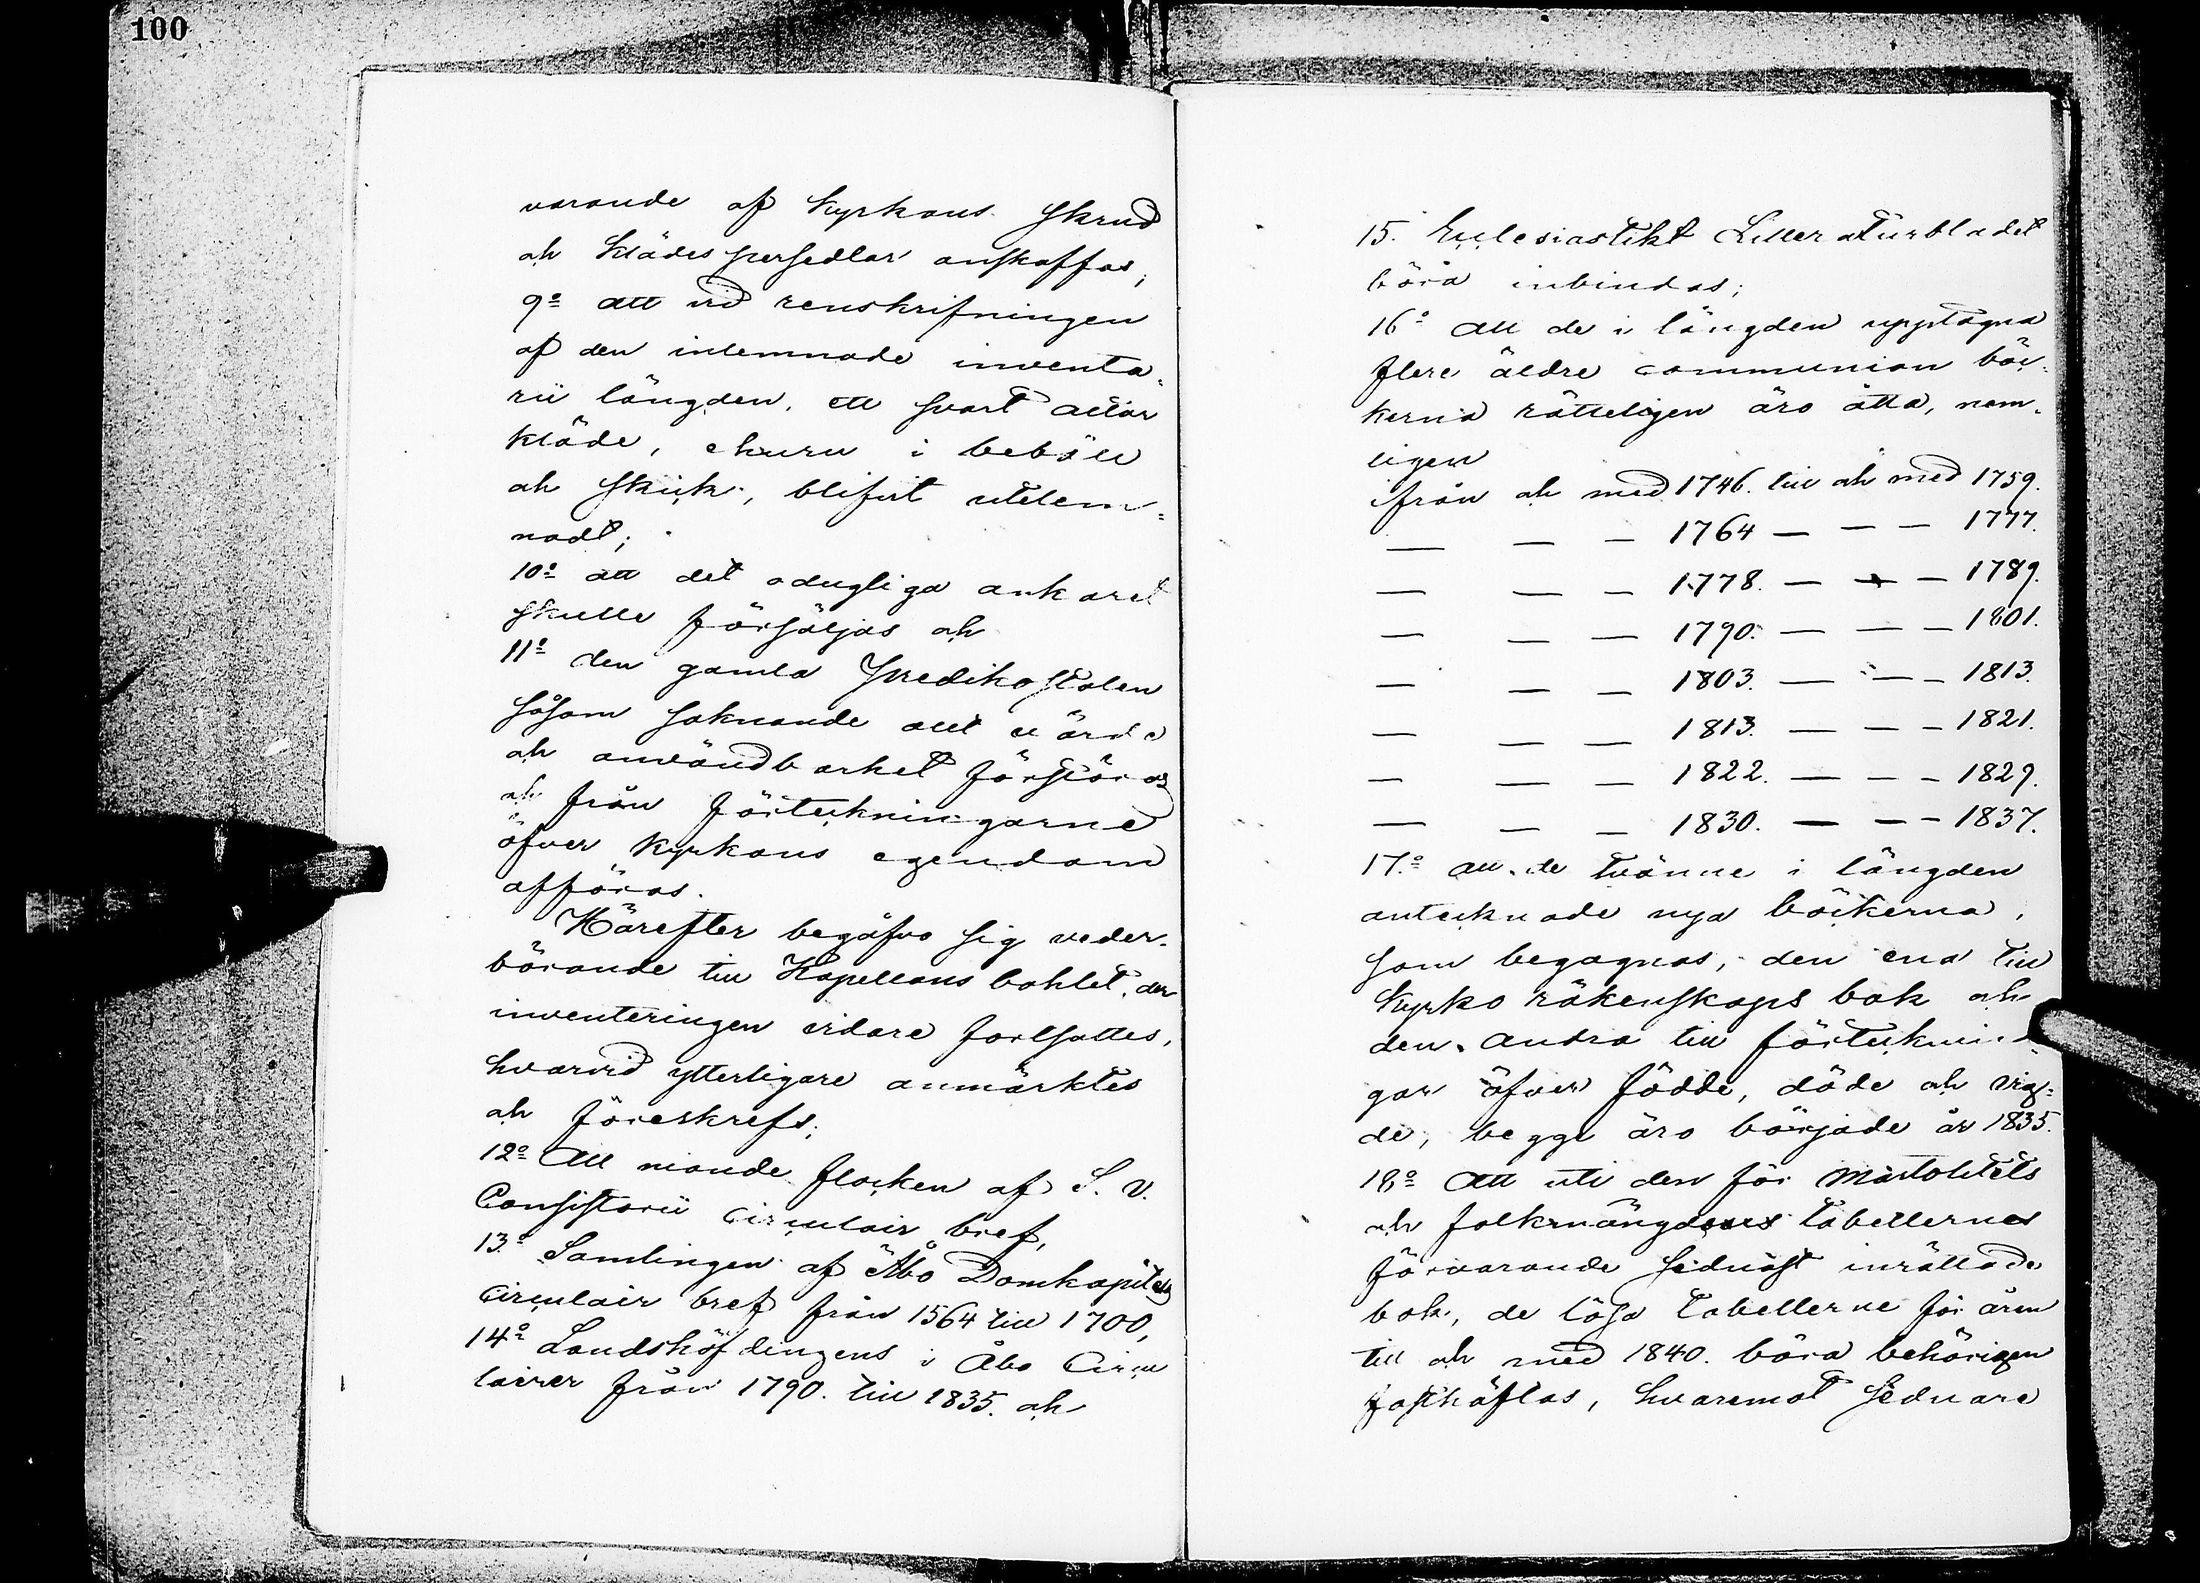 100
varande af Kyrkans skrud
och klädespersedlar anskaffas,
9o att vid renskrifningen
af den inlemnade inventa-
rii längden, ett svart altar
kläde, ehuru i behåll
och skick, blifvit utelem-
nadt;
10o att det odugliga ankaret
skulle försäljas och
11o den gamla Predikostolen
såsom saknande allt värde
och användbarhet förstöras
och från förteckningarne
öfver kyrkans egendom
afföras.
Härefter begåfvo sig veder-
börande till Kapellans bohlet, der
inventeringen vidare fortsattes,
hvarvid ytterligare anmärktes
och föreskrefs;
12o Att niande flocken af S. V.
Consistorii circulair bref,
13o Samlingen af Åbo Domkapitels
circulair bref från 1564 till 1700,
14o Landshöfdingens i Åbo Circu
lairer från 1790. till 1835. och
15. Ecclesiastikt Litteraturbladet
böra inbindas;
16o att de i längden upptagna
flere äldre communion böc-
kerna rätteligen äro åtta, nem-
ligen
från och med 1746. till och med 1759.
— — — 1764 — — — 1777.
— — — 1778. — — — 1789.
— — — 1790. — — — 1801.
— — — 1803. — — — 1813.
— — — 1813. — — — 1821.
— — — 1822. — — — 1829.
— — — 1830. — — — 1837.
17.o att de tvänne i längden
antecknade nya böckerna,
som begagnas, den ena till
Kyrko räkenskaps bok och
den andra till förtecknin-
gar öfver födde, döde och vig-
de, begge äro började år 1835.
18o Att uti den för Mortalitets
och folkmängdens tabellernas
förvarande sednast inrättade
bok, de lösa tabellerne för åren
till och med 1840. böra behörigen
fasthäftas, hvaremot sednare